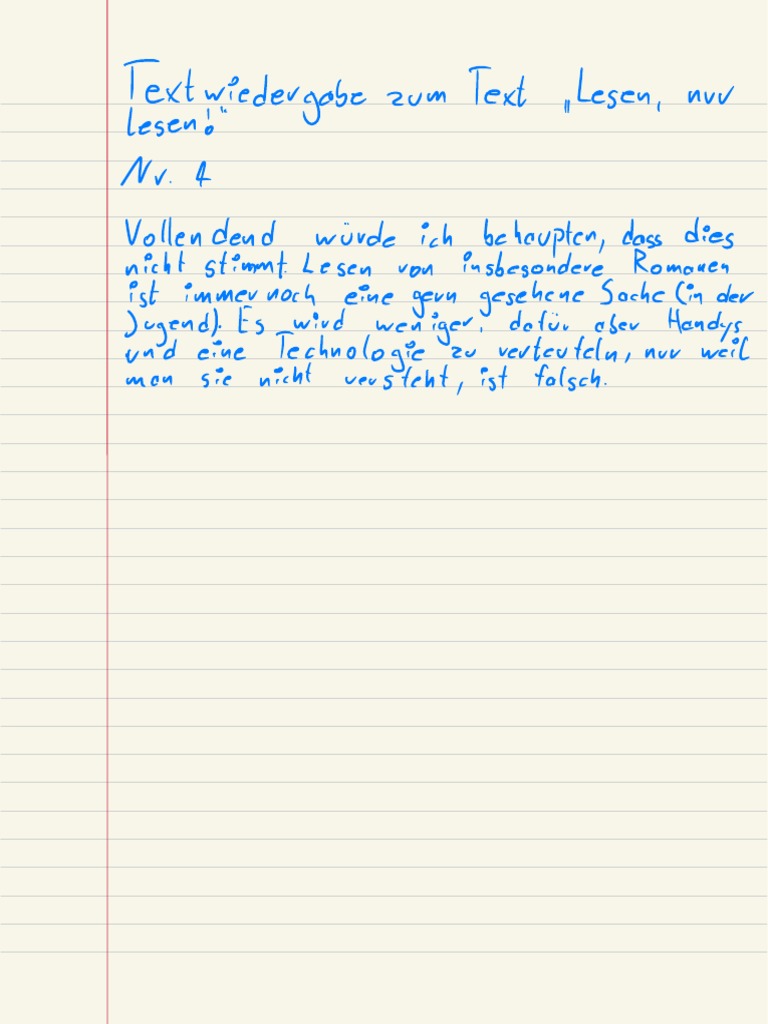 Textwiedergabe zum Text „Lesen, nur
lesen!“
Nr. 4
Vollendend würde ich behaupten, dass dies
nicht stimmt. Lesen von insbesondere Romanen
ist immer noch eine gern gesehene Sache (in der
Jugend). Es wird weniger, dafür aber Handys
und eine Technologie zu verteufeln, nur weil
man sie nicht versteht, ist falsch.